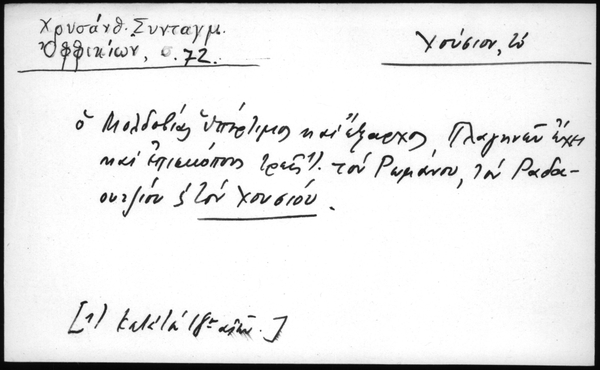 Χρυσάνθ. Συνταγμ.
Ὀφφικίων, σ. 72.
Χούσιον, τό
ὁ Μολδοβίας ὑπέρτιμος καὶ ἔξαρχος Πλαγηνῶν ἔχει
καὶ ἐπισκόπους τρεῖς 1). τὸν Ρωμάνου, τὸν Ραδα-
ουτζίου & τὸν Χουσίου.
[1) κατὰ τὸν 18ον αἰῶνα.]